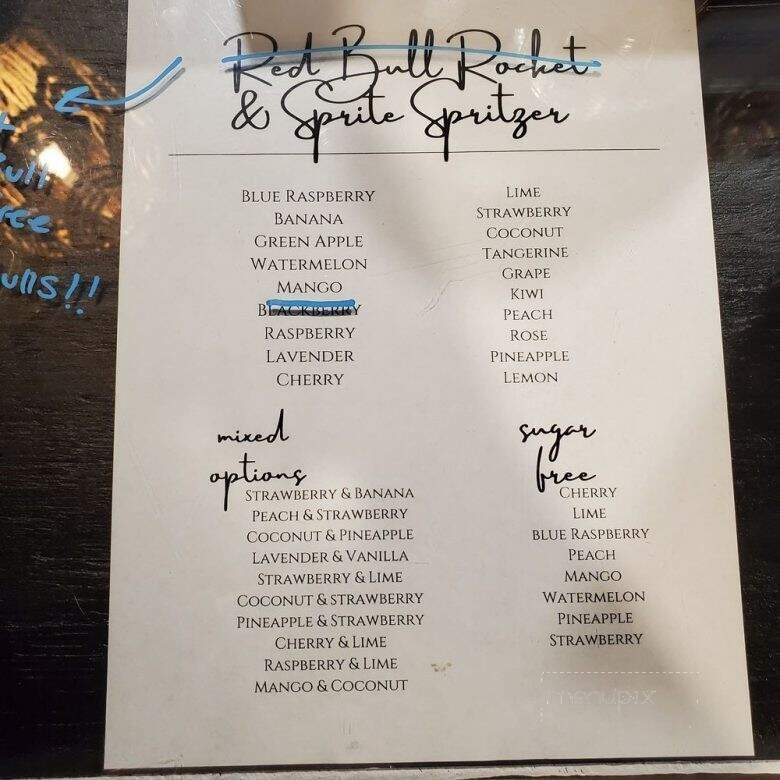 Red Bull Rocket
& Sprite Spritzer
BLUE RASPBERRY
BANANA
GREEN APPLE
WATERMELON
MANGO
BLACKBERRY
RASPBERRY
LAVENDER
CHERRY
LIME
STRAWBERRY
COCONUT
TANGERINE
GRAPE
KIWI
PEACH
ROSE
PINEAPPLE
LEMON
mixed
options
STRAWBERRY & BANANA
PEACH & STRAWBERRY
COCONUT & PINEAPPLE
LAVENDER & VANILLA
STRAWBERRY & LIME
COCONUT & STRAWBERRY
PINEAPPLE & STRAWBERRY
CHERRY & LIME
RASPBERRY & LIME
MANGO & COCONUT
sugar
free
CHERRY
LIME
BLUE RASPBERRY
PEACH
MANGO
WATERMELON
PINEAPPLE
STRAWBERRY